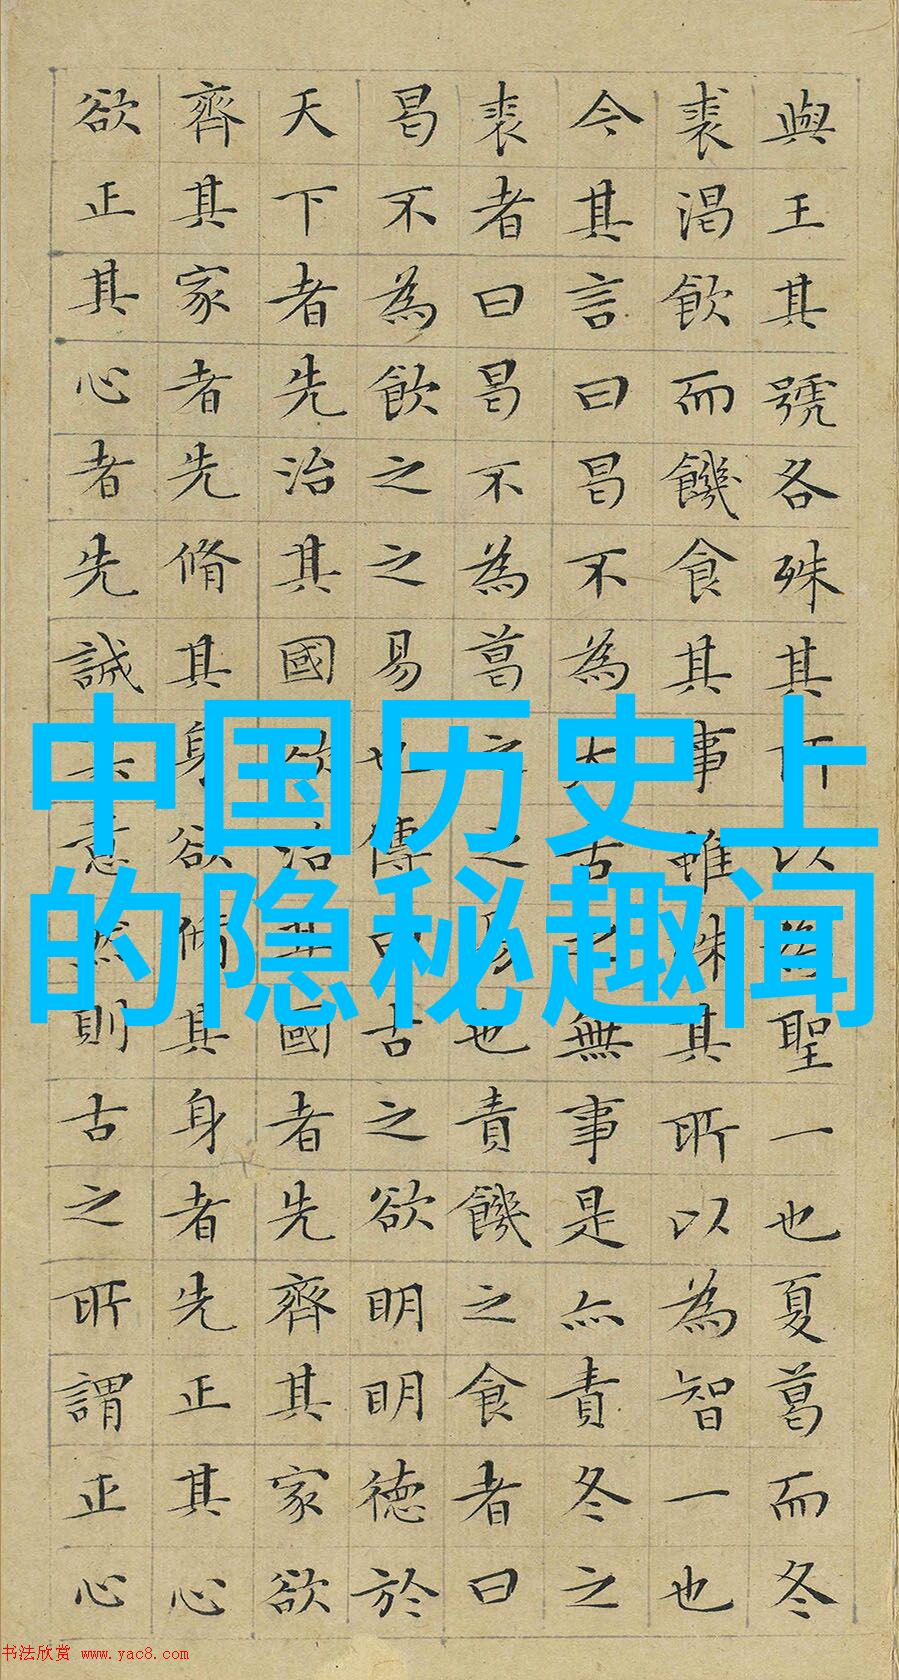 與王其號各殊其所以為聖一也夏葛而冬
裘渴飲而饑食其事雖殊其所以為智一也
今其言曰曷不為太古之無事是亦責冬之
裘者曰曷不為葛之之易也責饑之食者曰
曷不為飲之之易也傳曰古之欲明明德於
天下者先治其國欲治其國者先齊其家欲
齊其家者先脩其身欲脩其身者先正其心
欲正其心者先誠其意然則古之所謂正心
中国历史上
的隐秘趣闻
书法欣赏 www.yac8.com